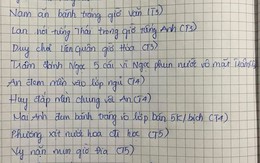 Nam ăn bánh tráng giờ văn (T3)
Lan nói tùng Thái trong giờ tiếng Anh (T3)
Duy chơi Liên Quân giờ Hóa (T3)
Trâm đánh Ngọc 5 cái vì Ngọc phun nước vô mặt
An đem mền vào lớp ngủ (T4)
Huy đắp mền chung với An (T4)
Mai Anh đem bánh tráng vô lớp bán 5K/bịch (T4)
Phương xịt nước hoa đi học (T5)
Vy nặn mụn giờ (T5)